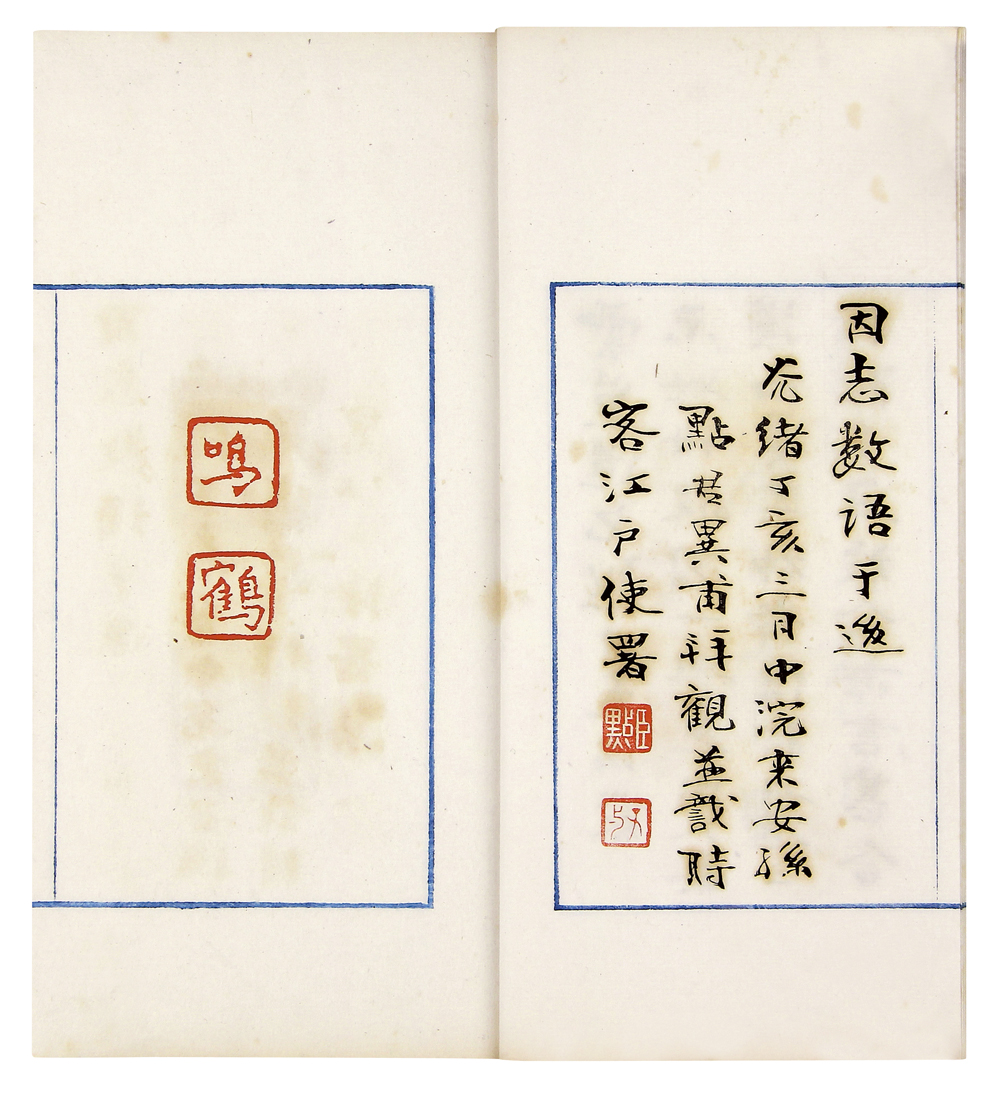 因志數語于
光緒丁亥三月中浣来安孫
點君異甫拜觀並識時
客江戶使署
臣點
鳴
鶴